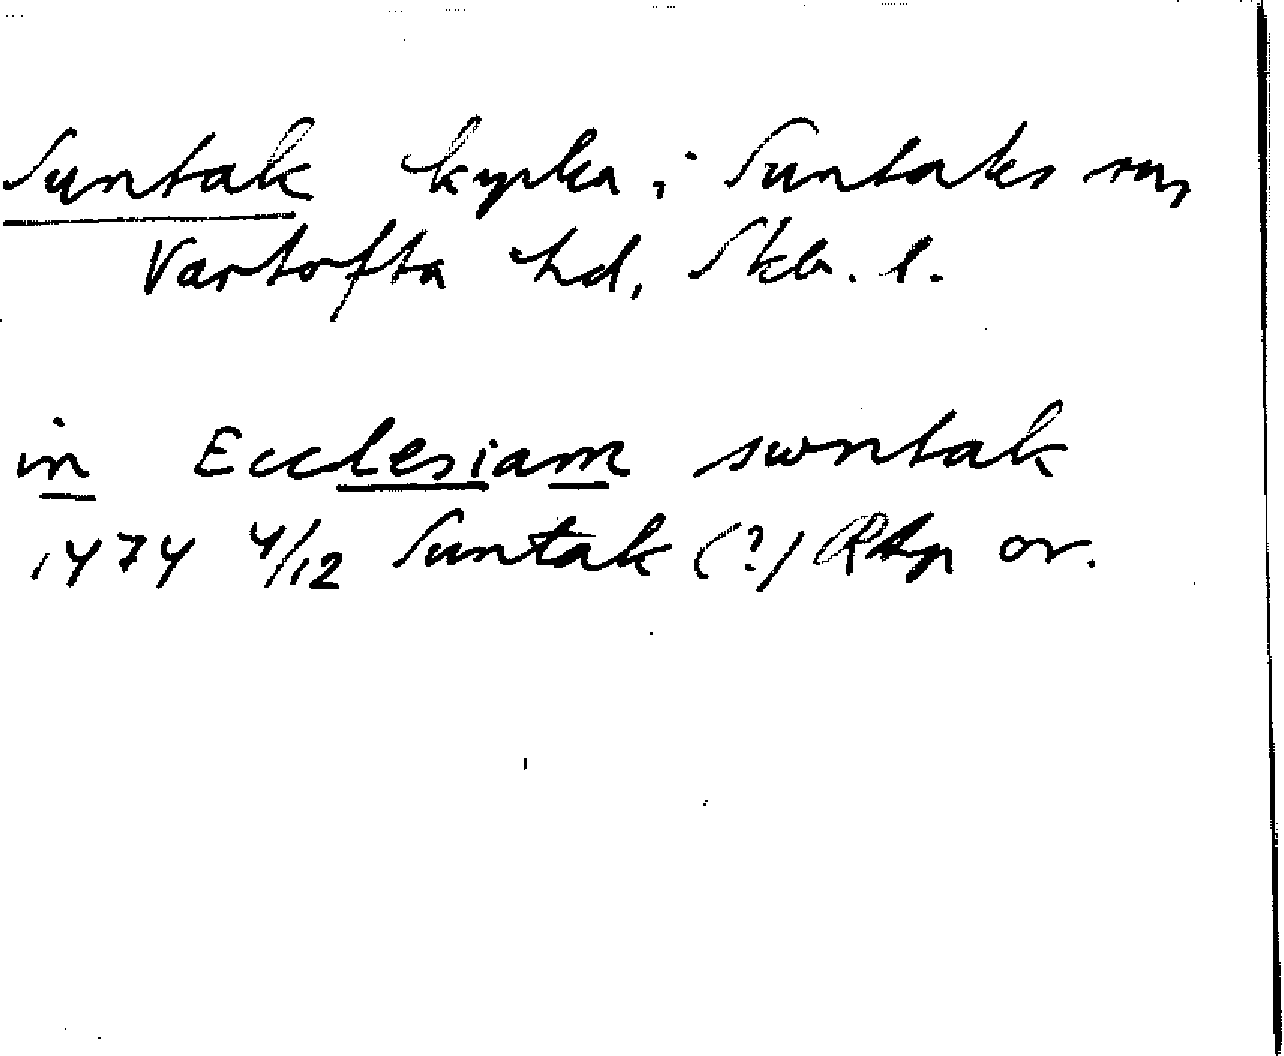 Suntak kyrka i Suntaks sn,
Vartofta hd, Skb. l.
in Ecclesiam swntak
1474 4/12 Suntak (?) RAp or.